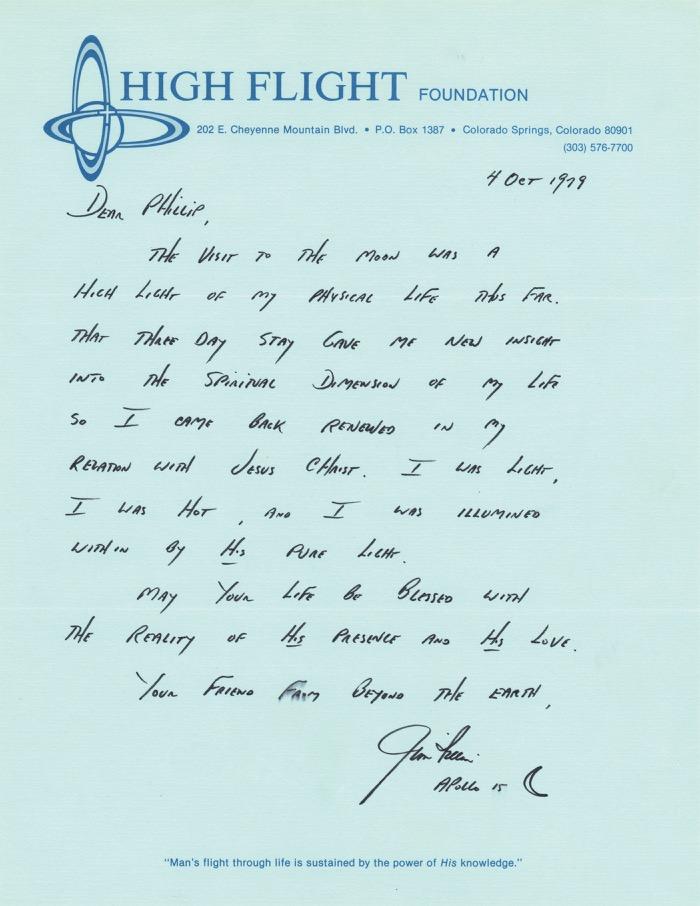 HIGH FLIGHT FOUNDATION
202 E. Cheyenne Mountain Blvd. • P.O. Box 1387 • Colorado Springs, Colorado 80901
(303) 576-7700
4 OCT 1979
DEAR PHILLIP,
THE VISIT TO THE MOON WAS A
HIGH LIGHT OF MY PHYSICAL LIFE THUS FAR.
THAT THREE DAY STAY GAVE ME NEW INSIGHT
INTO THE SPIRITUAL DIMENSION OF MY LIFE
SO I CAME BACK RENEWED IN MY
RELATION WITH JESUS CHRIST. I WAS LIGHT,
I WAS HOT, AND I WAS ILLUMINED
WITHIN BY HIS PURE LIGHT.
MAY YOUR LIFE BE BLESSED WITH
THE REALITY OF HIS PRESENCE AND HIS LOVE.
YOUR FRIEND FROM BEYOND THE EARTH,
Jim Irwin
APOLLO 15
"Man's flight through life is sustained by the power of His knowledge."